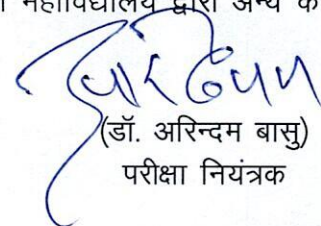 महाविद्यालय द्वारा अन्य
(डॉ. अरिन्दम बासु)
परीक्षा नियंत्रक